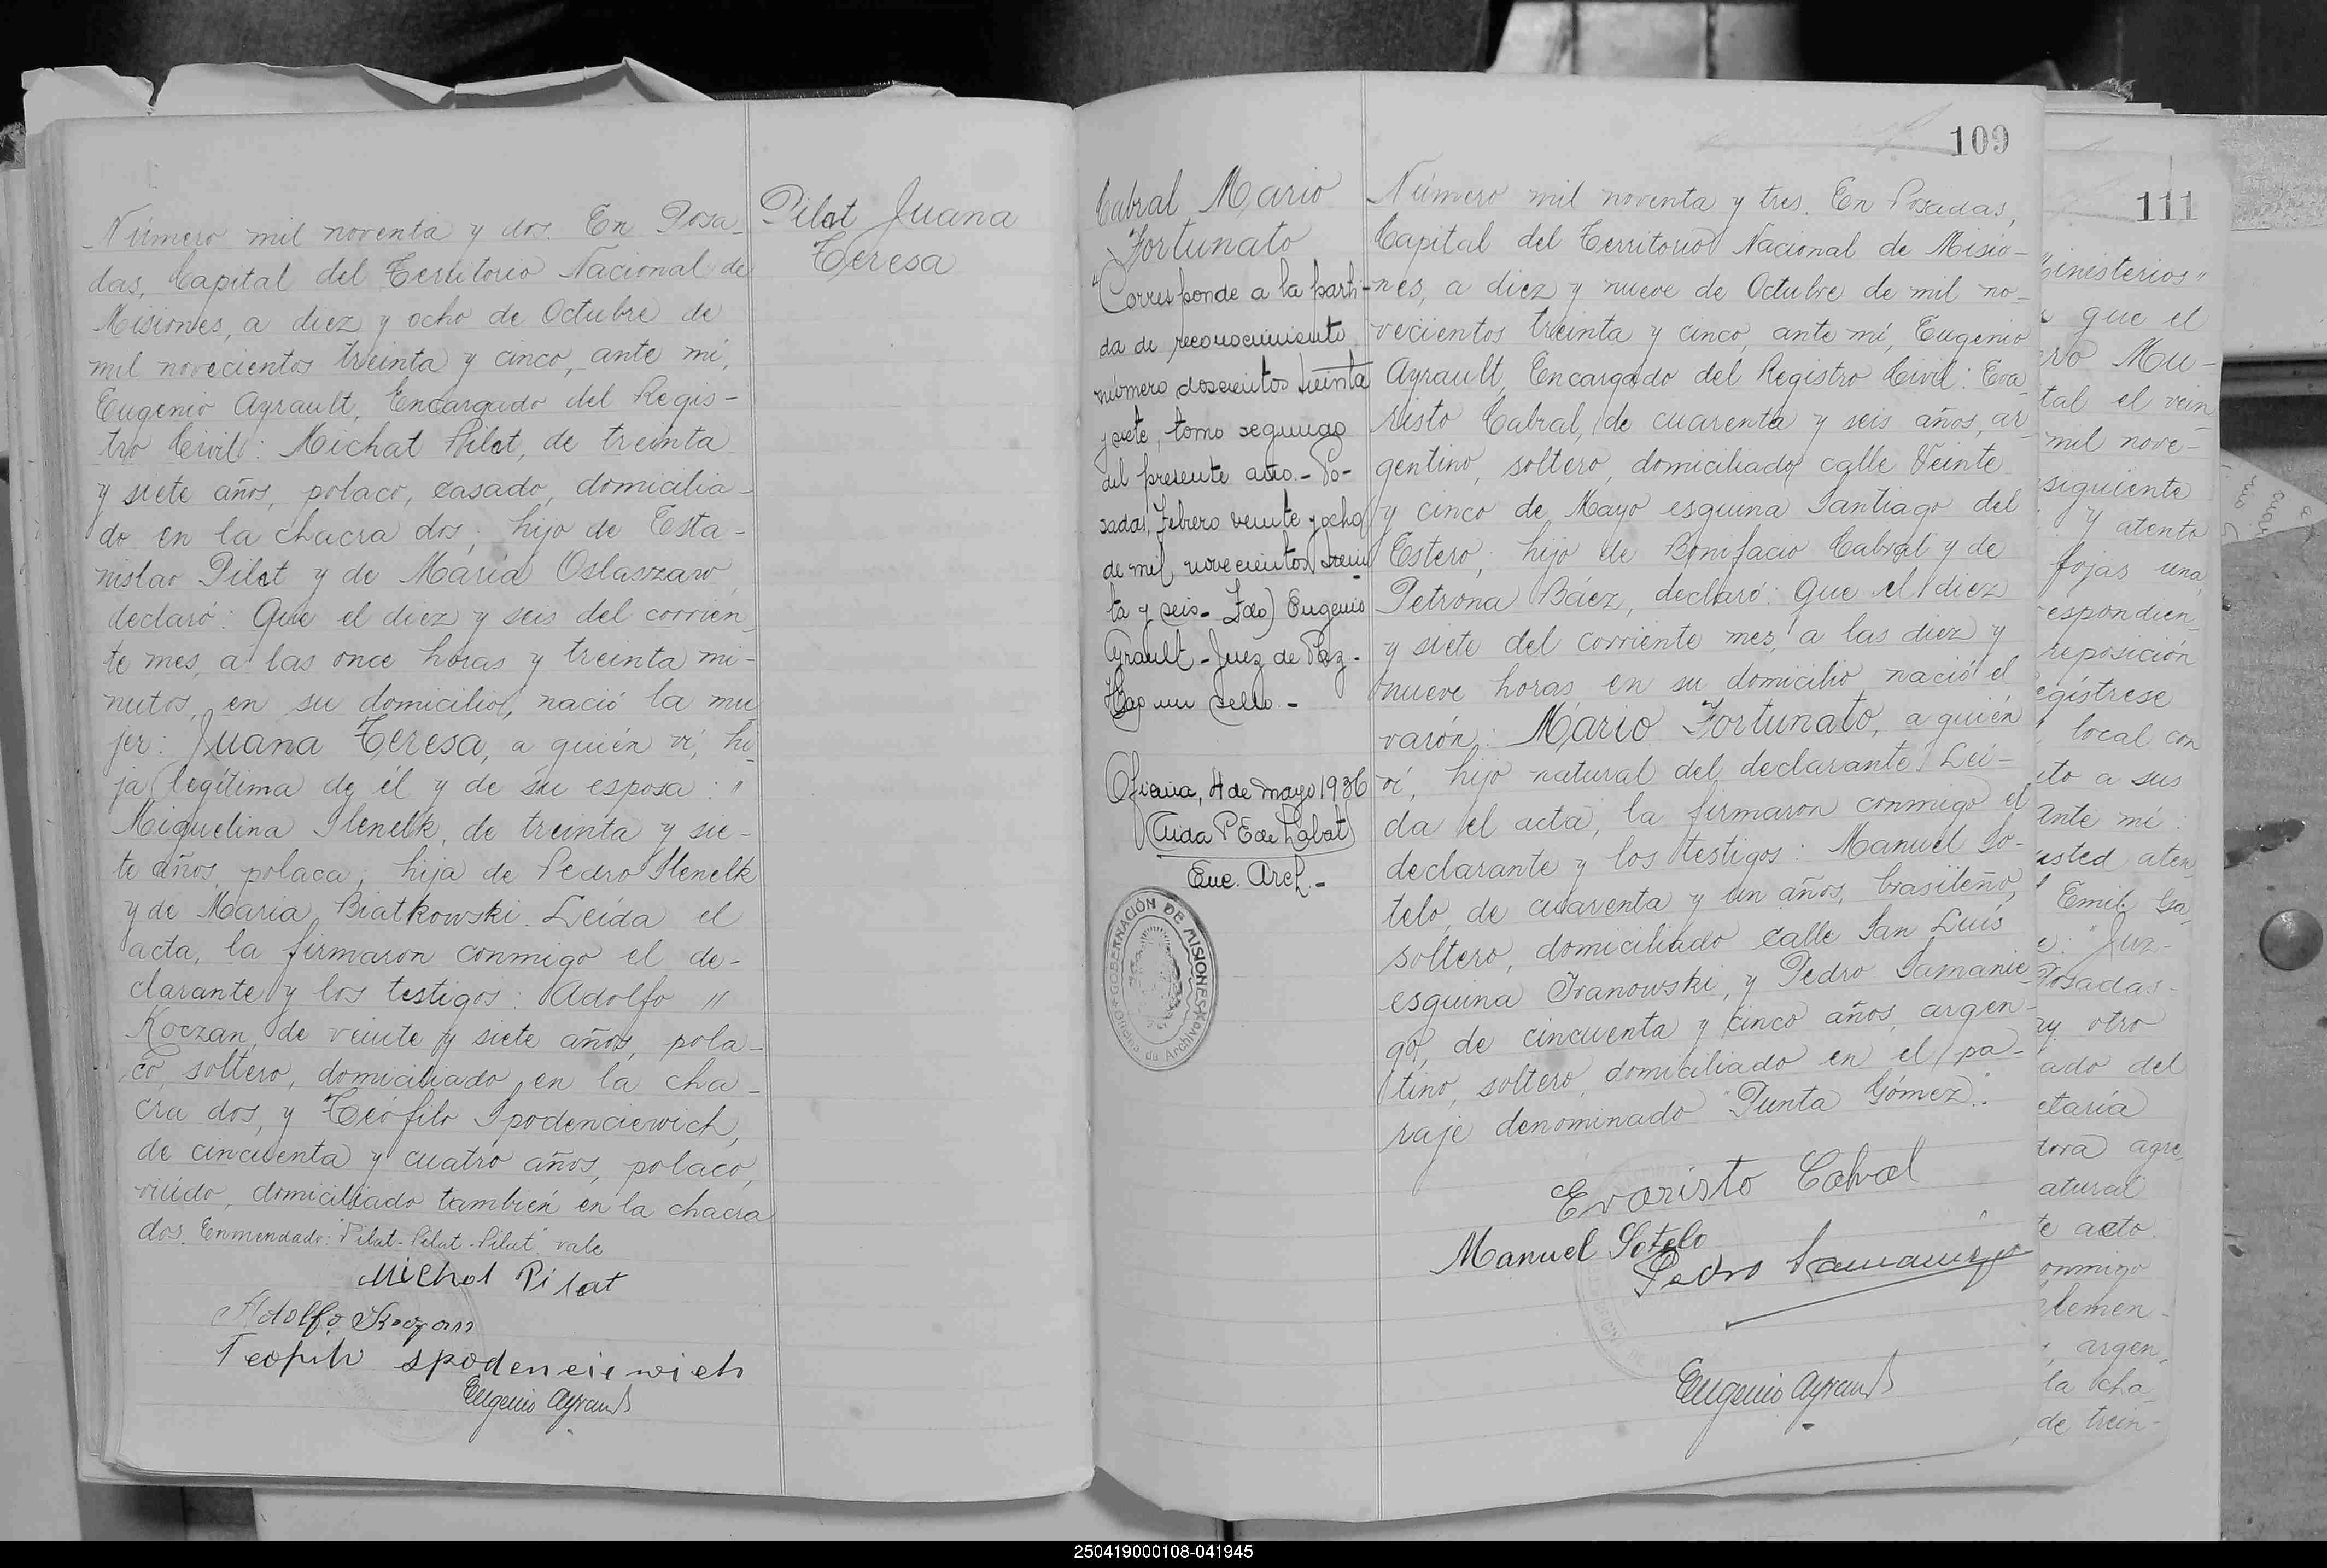 Pilat Juana
Teresa
Número mil noventa y dos. En Posa-
das, Capital del Territorio Nacional de
Misiones, a diez y ocho de Octubre de
mil novecientos treinta y cinco, ante mí,
Eugenio Ayrault, Encargado del Regis-
tro Civil: Michat Pilat, de treinta
y siete años, polaco, casado, domicilia-
do en la chacra dos; hijo de Esta-
nislao Pilat y de María Oslaszaw,
declaró: Que el diez y seis del corrien-
te mes, a las once horas y treinta mi-
nutos, en su domicilio, nació la mu
jer: Juana Teresa, a quién ví, hi-
ja legítima de él y de su esposa: "
Miguelina Slenelk, de treinta y sie-
te años, polaca, hija de Pedro Slenelk
y de María Biatkowski. Leída el
acta, la firmaron conmigo el de-
clarante y los testigos: Adolfo "
Koczan, de veinte y siete años, pola-
co, soltero, domiciliado en la cha-
cra dos, y Teófilo Spodenciewich,
de cincuenta y cuatro años, polaco,
viudo, domiciliado también en la chacra
dos. Enmendado: "Pilat-Pilat-Pilat" vale
Michal Pilat
Adolfo Koczan
Teofilo spodenciewich
Eugenio Ayrault
109
Cabral Mario
Fortunato
"Corresponde a la parti-
da de reconocimiento
número doscientos treinta
y siete, tomo segundo
del presente año.- Po-
sadas, Febrero veinte y ocho
de mil novecientos trein
ta y seis.- Fdo) Eugenio
Ayrault - Juez de Paz.-
Hay un sello.-
Oficina, 4 de mayo 1936
Enc. Arch.-
GOBERNACIÓN DE MISIONES
Oficina de Archivo
Número mil noventa y tres. En Posadas,
Capital del Territorio Nacional de Misio-
nes, a diez y nueve de Octubre de mil no-
vecientos treinta y cinco, ante mí, Eugenio
Ayrault, Encargado del Registro Civil: Eva
risto Cabral, de cuarenta y seis años, ar
gentino, soltero, domiciliado calle Veinte
y cinco de Mayo esquina Santiago del
Estero; hijo de Bonifacio Cabral y de
Petrona Báez, declaró: Que el diez
y siete del corriente mes, a las diez y
nueve horas, en su domicilio nació el
varón: Mario Fortunato, a quién
ví, hijo natural del declarante. Leí-
da el acta, la firmaron conmigo el
declarante y los testigos: Manuel So-
telo, de cuarenta y un años, brasileño,
soltero, domiciliado calle San Luís
esquina Ivanowski, y Pedro Samanie-
go, de cincuenta y cinco años, argen-
tino, soltero, domiciliado en el pa-
raje denominado "Punta Gómez".
Evaristo Cabral
Manuel Sotelo
Pedro Samaniego
Eugenio Ayrault
111
Ministerios"
que el
ro Mu-
tal el vein
mil nove-
siguiente
y atento
fojas una,
espondien
reposición
egístrese
local con
ito a sus
Ante mí:
usted aten
Emil. Ga
e: "Juz-
Posadas-
ay otro
ado del
etaría
tora agre
atural
te acto.
onmigo
lemen-
, argen
la cha
de trein-
250419000108-041945